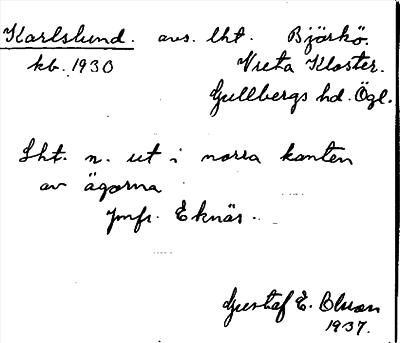 Karlslund. avs. lht. Björkö.
kb. 1930 Vreta Kloster.
Gullbergs hd. Ögl.
Lht. n. ut i norra kanten
av ägorna
Jmfr. Eknäs.
Gustaf E. Olsson
1937.